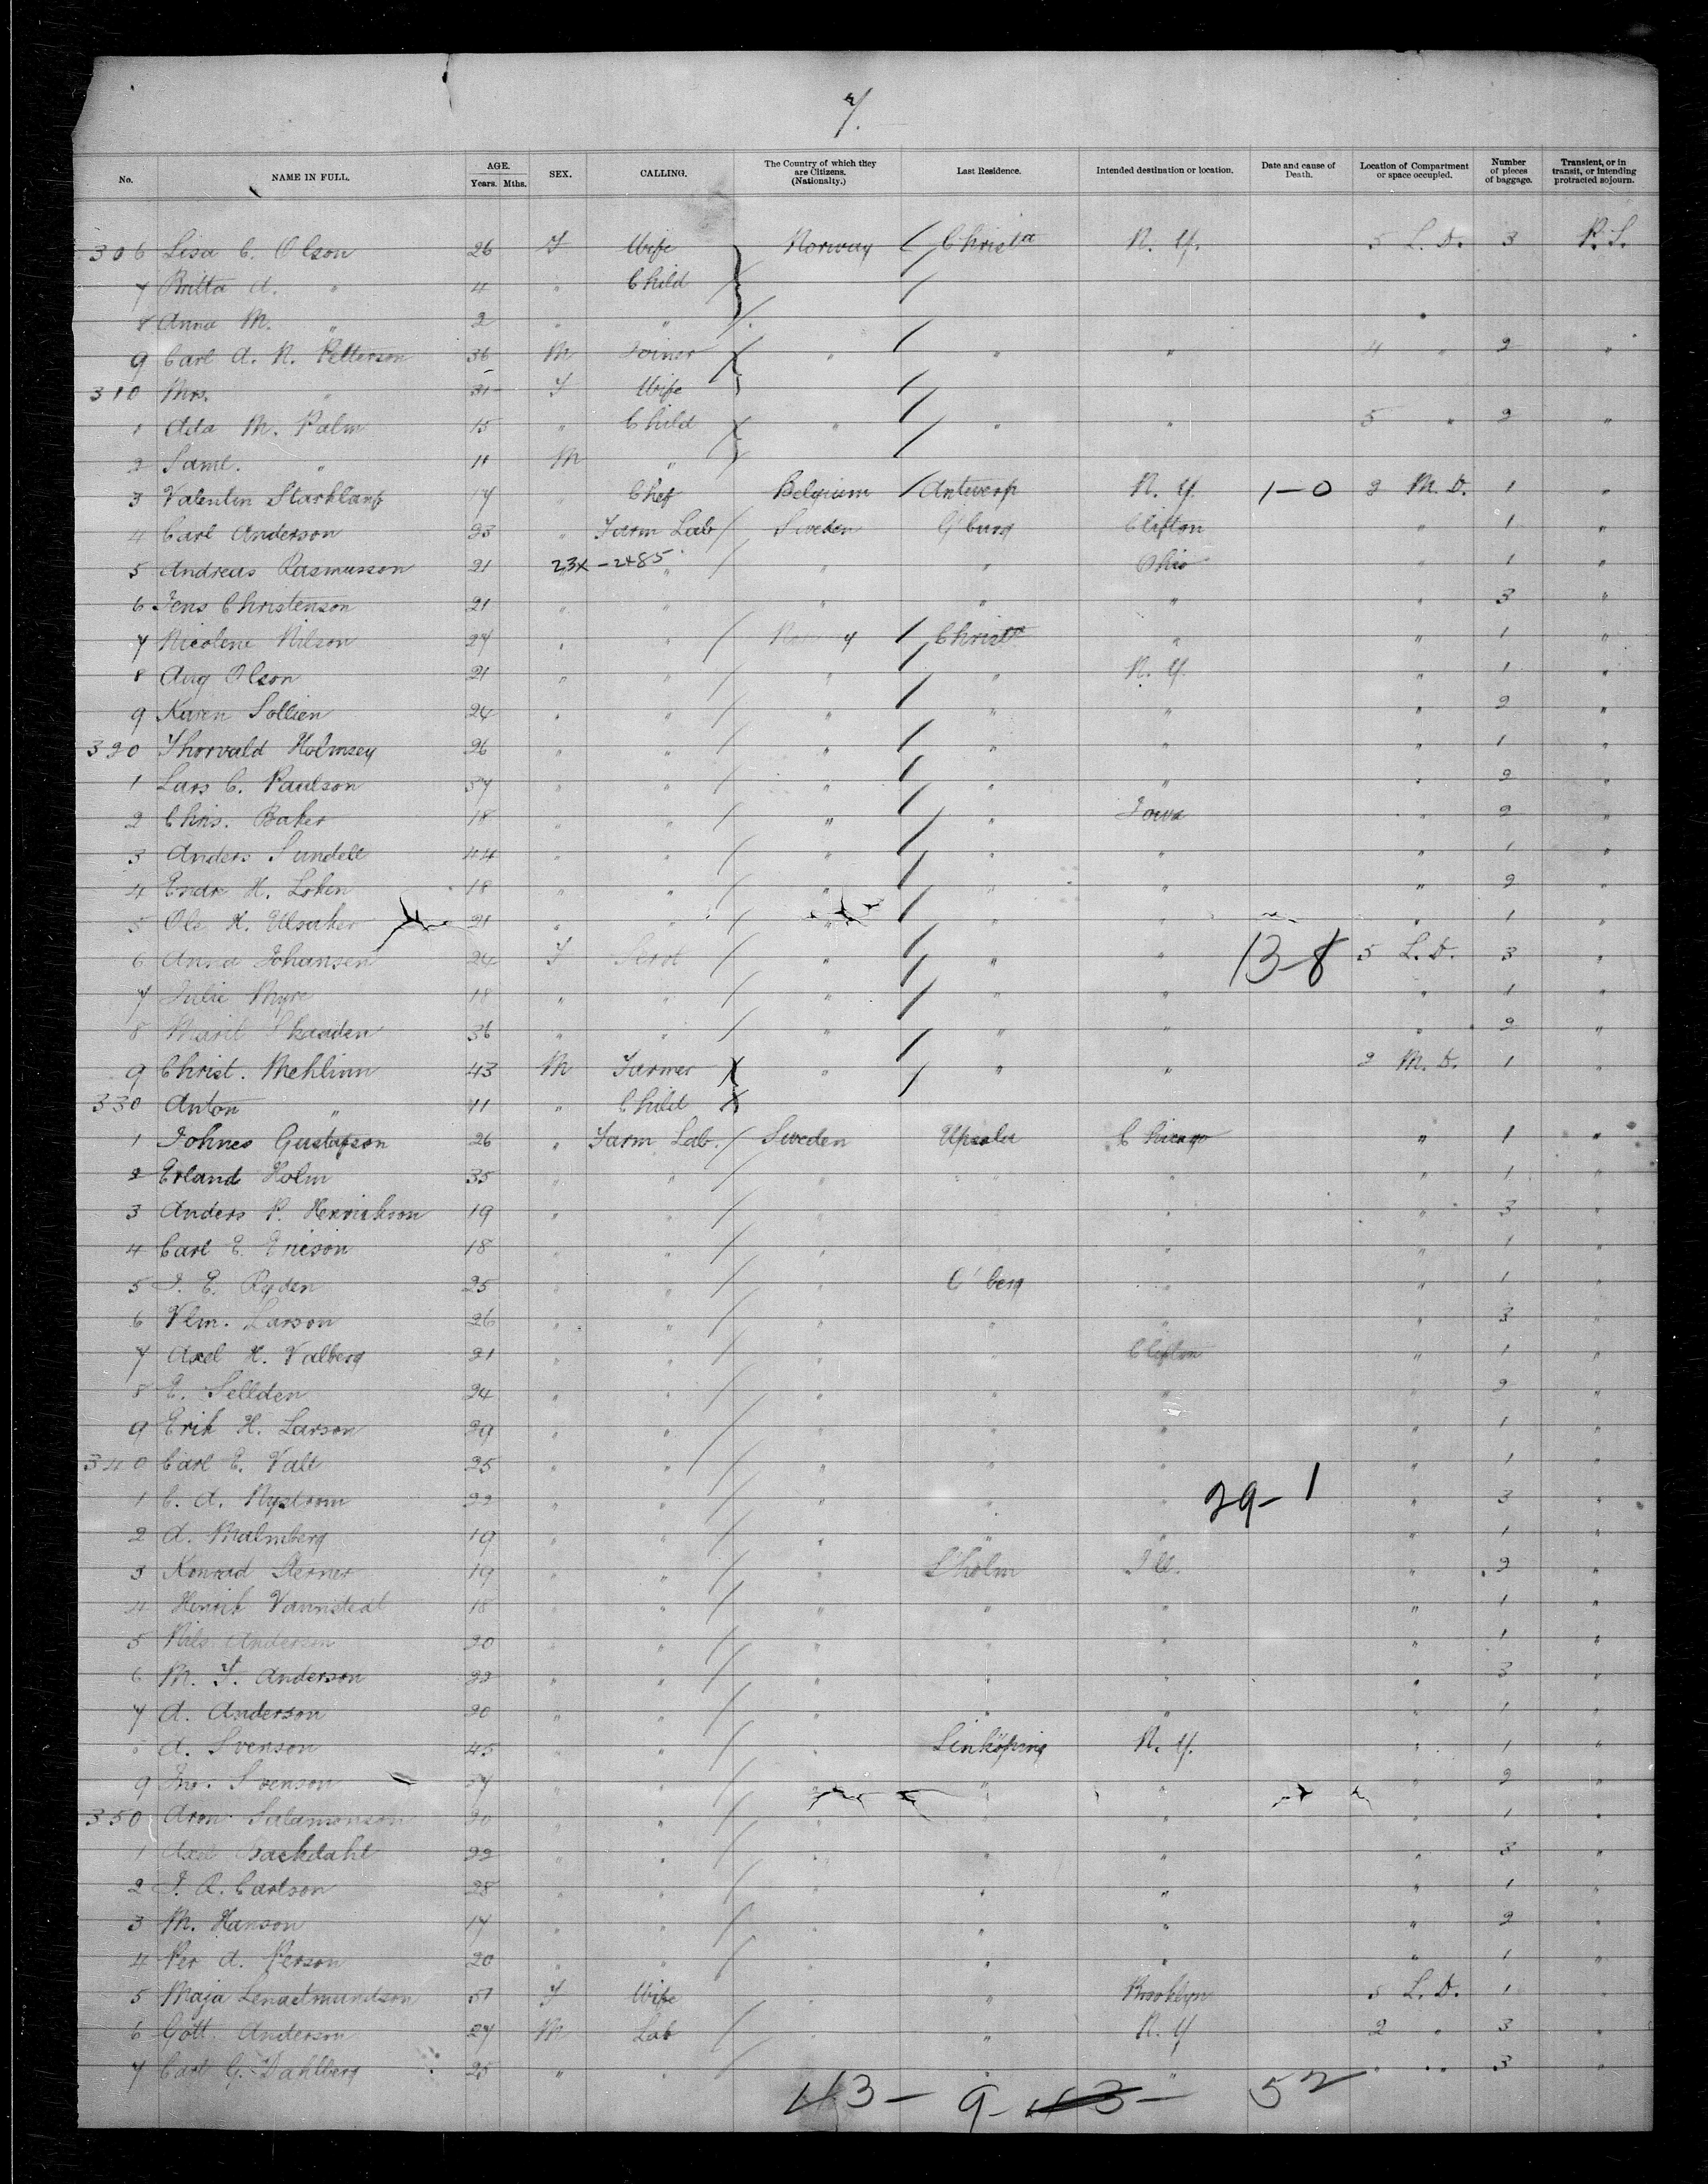 7.
No. NAME IN FULL. AGE. Years. Mths. SEX. CALLING. The Country of which they are Citizens. (Nationalty.) Last Residence. Intended destination or location. Date and cause of Death. Location of Compartment or space occupied. Number of pieces of baggage. Transient, or in transit, or intending protracted sojourn.
306 Lisa C. Olson 26 F Wife Norway Christa N. Y. 5 L. D. 3 P. S.
7 Britta A. " 4 " Child
8 Anna M. " 2 " "
9 Carl A. N. Petterson 36 M Joiner " " " 4 " 2 "
310 Mrs. " 31 F Wife
1 Ada M. Palm 15 " Child " " " 5 " 2 "
2 Saml. " 11 M "
3 Valentin 17 " Chef Belgium Antwerp N. Y. 1-0 2 M. D. 1 "
4 Carl Anderson 23 " Farm Lab Sweden G'burg Clifton " 1 "
5 Andreas Rasmusson 21 23x-2485 " " " Ohio " 1 "
6 Jens Christenson 21 " " " " " " 3 "
7 Nicolene Nilson 27 " " Christa " " 1 "
8 Aug Olson 21 " " " " N. Y. " 1 "
9 Karen Sollien 24 " " " " " " 2 "
320 Thorvald Holmsey 26 " " " " " " 1 "
1 Lars C. Paulson 37 " " " " " " 2 "
2 Chris. Baker 18 " " " " Iowa " 2 "
3 Anders Sundell 44 " " " " " " 1 "
4 H. Loken 18 " " " " " " 2 "
5 Ole H. Ulsaker 21 " " " " " " 1 "
6 Anna Johansen 24 F Servt " " " 13-8 5 L. D. 3 "
7 Julie Myre 18 " " " " " " 1 "
8 Marit Skaaden 36 " " " " " " 2 "
9 Christ. Mehlinn 43 M Farmer " " " 2 M. D. 1 "
330 Anton " 11 " Child
1 Johnes Gustafson 26 " Farm Lab. Sweden Upsala Chicago " 1 "
2 Erland Holm 35 " " " " " " 1 "
3 Anders P. Henrikson 19 " " " " " 3 "
4 Carl E. Ericson 18 " " " " " 1 "
5 J. E. Ryden 25 " " " C'berg " " 1 "
6 Vlm. Larson 26 " " " " " " 3 "
7 Axel H. Valberg 21 " " " " Clifton " 1 "
8 E. Sellden 24 " " " " " " 2 "
9 Erik H. Larson 29 " " " " " " 1 "
340 Carl E. Vall 25 " " " " " " 1 "
1 C. A. Nystrom 22 " " " " " 29-1 " 3 "
2 A. Malmberg 19 " " " " " " 1 "
3 Konrad Sterner 19 " " " S'holm Ill. " 2 "
4 Henrik Vannstedt 18 " " " " " " 1 "
5 Nils Anderson 20 " " " " " " 1 "
6 M. F. Anderson 22 " " " " " " 3 "
7 A. Anderson 20 " " " " " " 1 "
8 A. Svenson 45 " " " Linköping N. Y. " 1 "
9 Jno. Svenson 37 " " " " " " 2 "
350 Aron Salamonson 20 " " " " " " 1 "
1 Axel Backdahl 22 " " " " " " 3 "
2 J. A. Carlson 28 " " " " " " 1 "
3 M. Hanson 17 " " " " " " 2 "
4 Per A. Person 20 " " " " " " 1 "
5 Maja 51 F Wife " " Brooklyn 5 L. D. 1 "
6 Gott. Anderson 27 M Lab " " N. Y 2 " 3 "
7 Carl G. Dahlberg 25 " " " " " " 3 "
43- 9- 43- 52